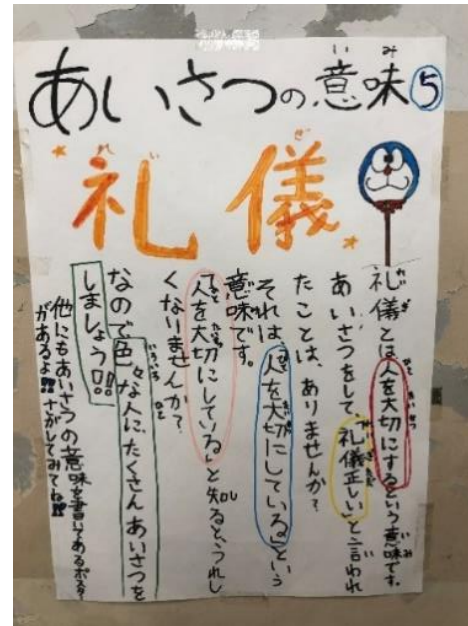 あいさつの意味⑤
礼儀
礼儀とは人を大切にするという意味です。
あいさつをして、「礼儀正しい」と言われ
たことは、ありませんか？
それは、「人を大切にしている」という
意味です。
「人を大切にしている」と知ると、うれし
くなりませんか？
なので色々な人に、たくさんあいさつを
しましょう!!
他にもあいさつの意味を書いてあるポスター
があるよ!!さがしてみてね!!